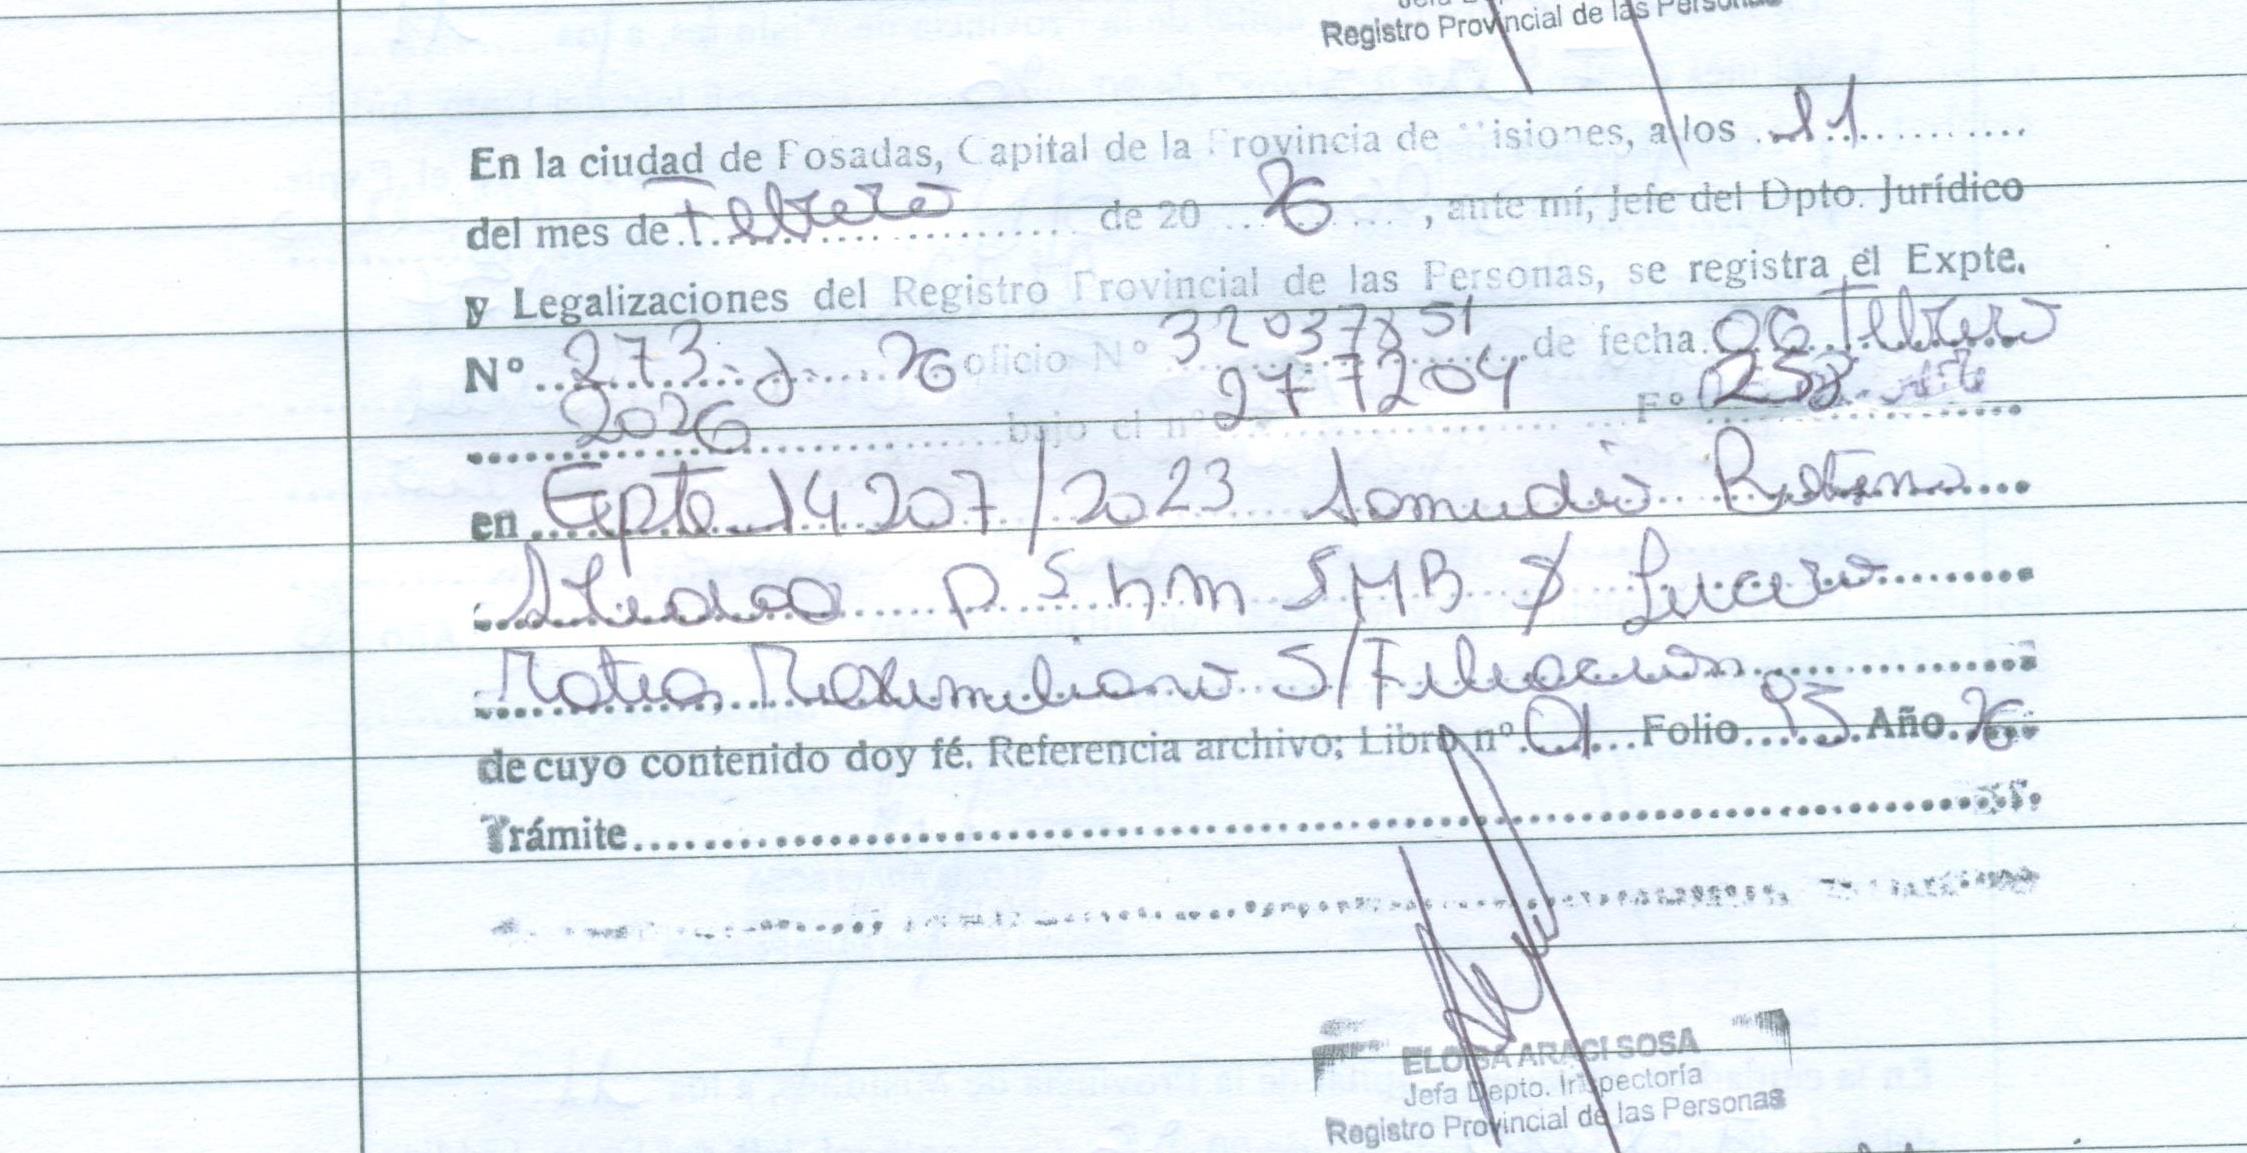 Registro Provincial de las Personas
En la ciudad de Posadas, Capital de la Provincia de Misiones, a los 11
del mes de Febrero de 20 26, ante mí, Jefe del Dpto. Jurídico
y Legalizaciones del Registro Provincial de las Personas, se registra el Expte.
Nº 273 26 oficio Nº 32037851 de fecha 06 Febrero
2026 bajo el nº 277204 Fº 258
en Epte 14207/2023 Samudio
P S h m S M B Lucero
Matias, Maximiliano S/Filiacion
de cuyo contenido doy fé. Referencia archivo; Libro nº 01 Folio 95 Año 26
Trámite
ELOISA ARACI SOSA
Jefa Depto. Inspectoría
Registro Provincial de las Personas